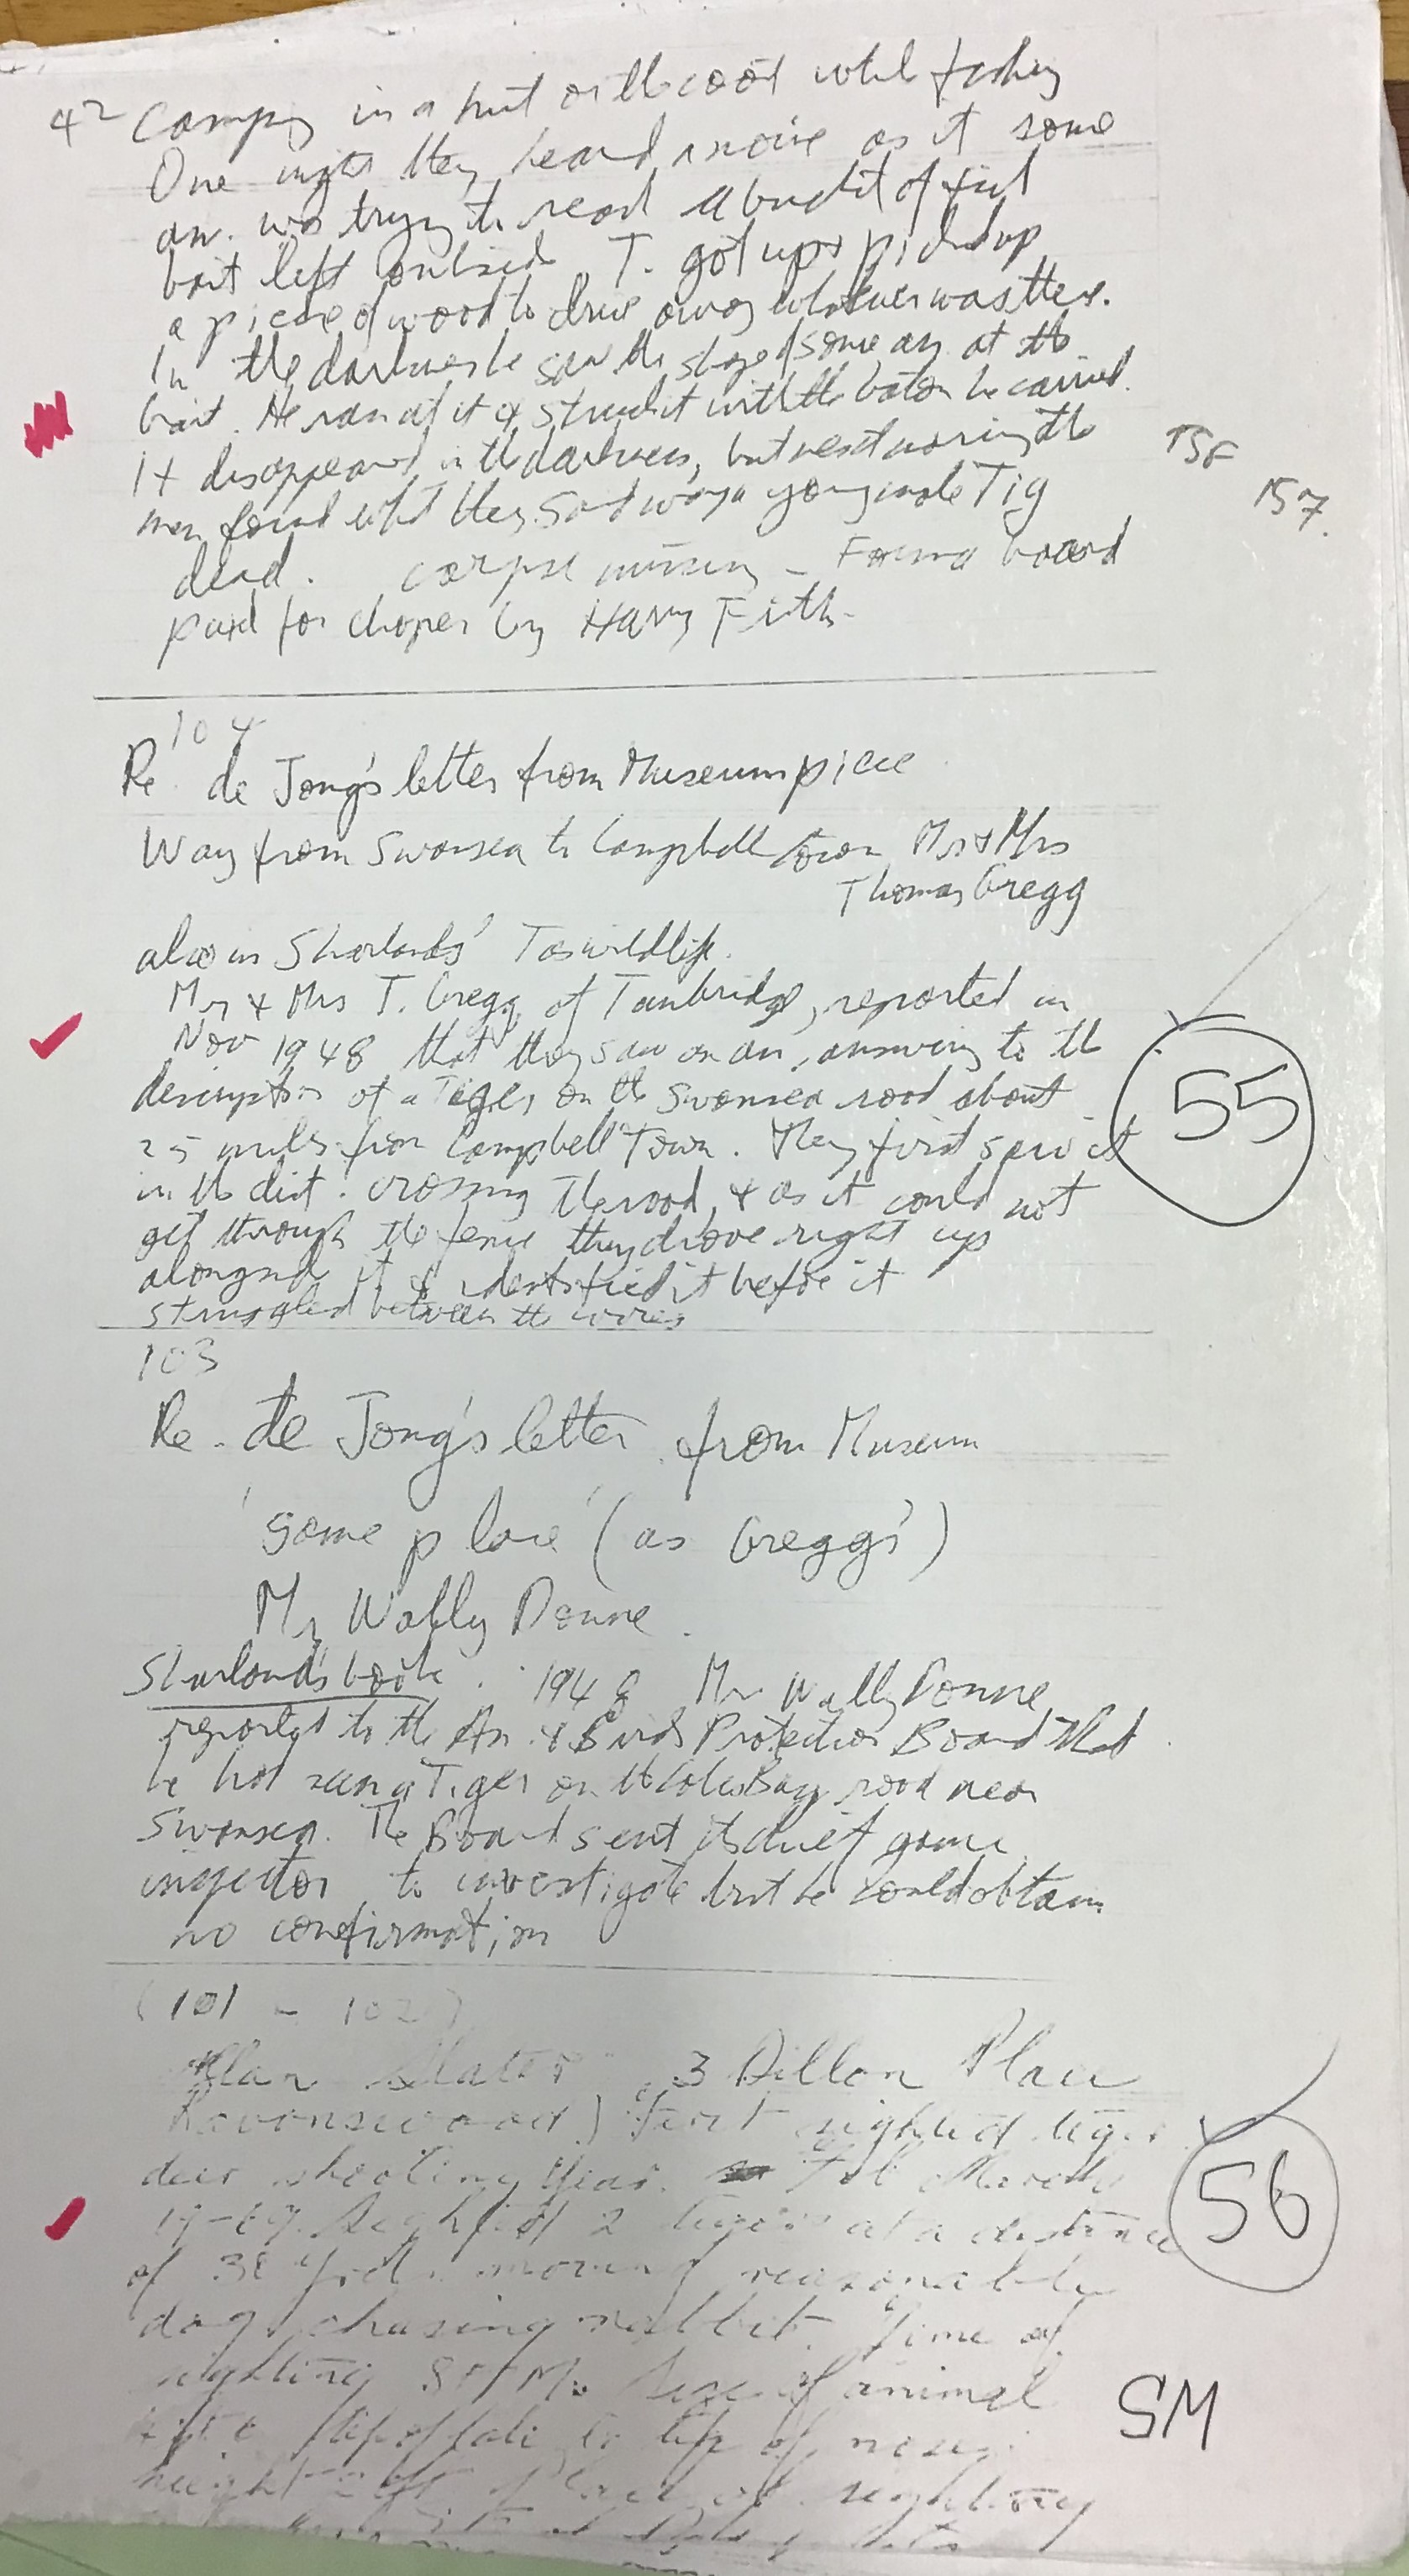 42 Camping in a hut on the coast while fishing
One night they heard a noise as if some
an. was trying to reach a bucket of fish
bait left outside. T. got up & picked up
a piece of wood to drive away whatever was there.
In the darkness he saw the shape of some an. at the
bait. He ran at it & struck it with the baton he carried.
It disappeared in the darkness, but next morning the
men found what they said was a young male Tig
dead. corpse missing - Fauna board
paid for chopper by Harry Frith.
156
157.
104
Re. de Jong's letter from Museum piece
Way from Swansea to Campbell town Mr & Mrs
Thomas Gregg
also in Sharlands' Tas wildlife.
Mr & Mrs T. Gregg of Tunbridge, reported in
Nov 1948 that they saw an an. answering to the
description of a Tiger on the Swansea road about
25 miles from Campbell Town. They first saw it
in the dist. crossing the road, & as it could not
get through the fence they drove right up
alongside it & identified it before it
struggled between the wires
55
103
Re. de Jong's letter from Museum
'same place' (as Gregg's)
Mr Wally Donne.
Sharland's book. 1948 Mr Wally Donne
reported to the An. & Birds Protection Board that
he had seen a Tiger on the Coles Bay road near
Swansea. The Board sent its chief game
inspector to investigate but he could obtain
no confirmation
(101 - 102)
Allan Slater 3 Dillon Place
Ravenswood) first sighted tiger
deer shooting year. Feb March
Sighted 2 tigers at a distance
of 30 yrds. moving reasonable
dog chasing rabbit. Time of
sighting 8 PM. Size of animal
tip of tail to tip of nose
height 2 ft. Place of sighting
56
SM